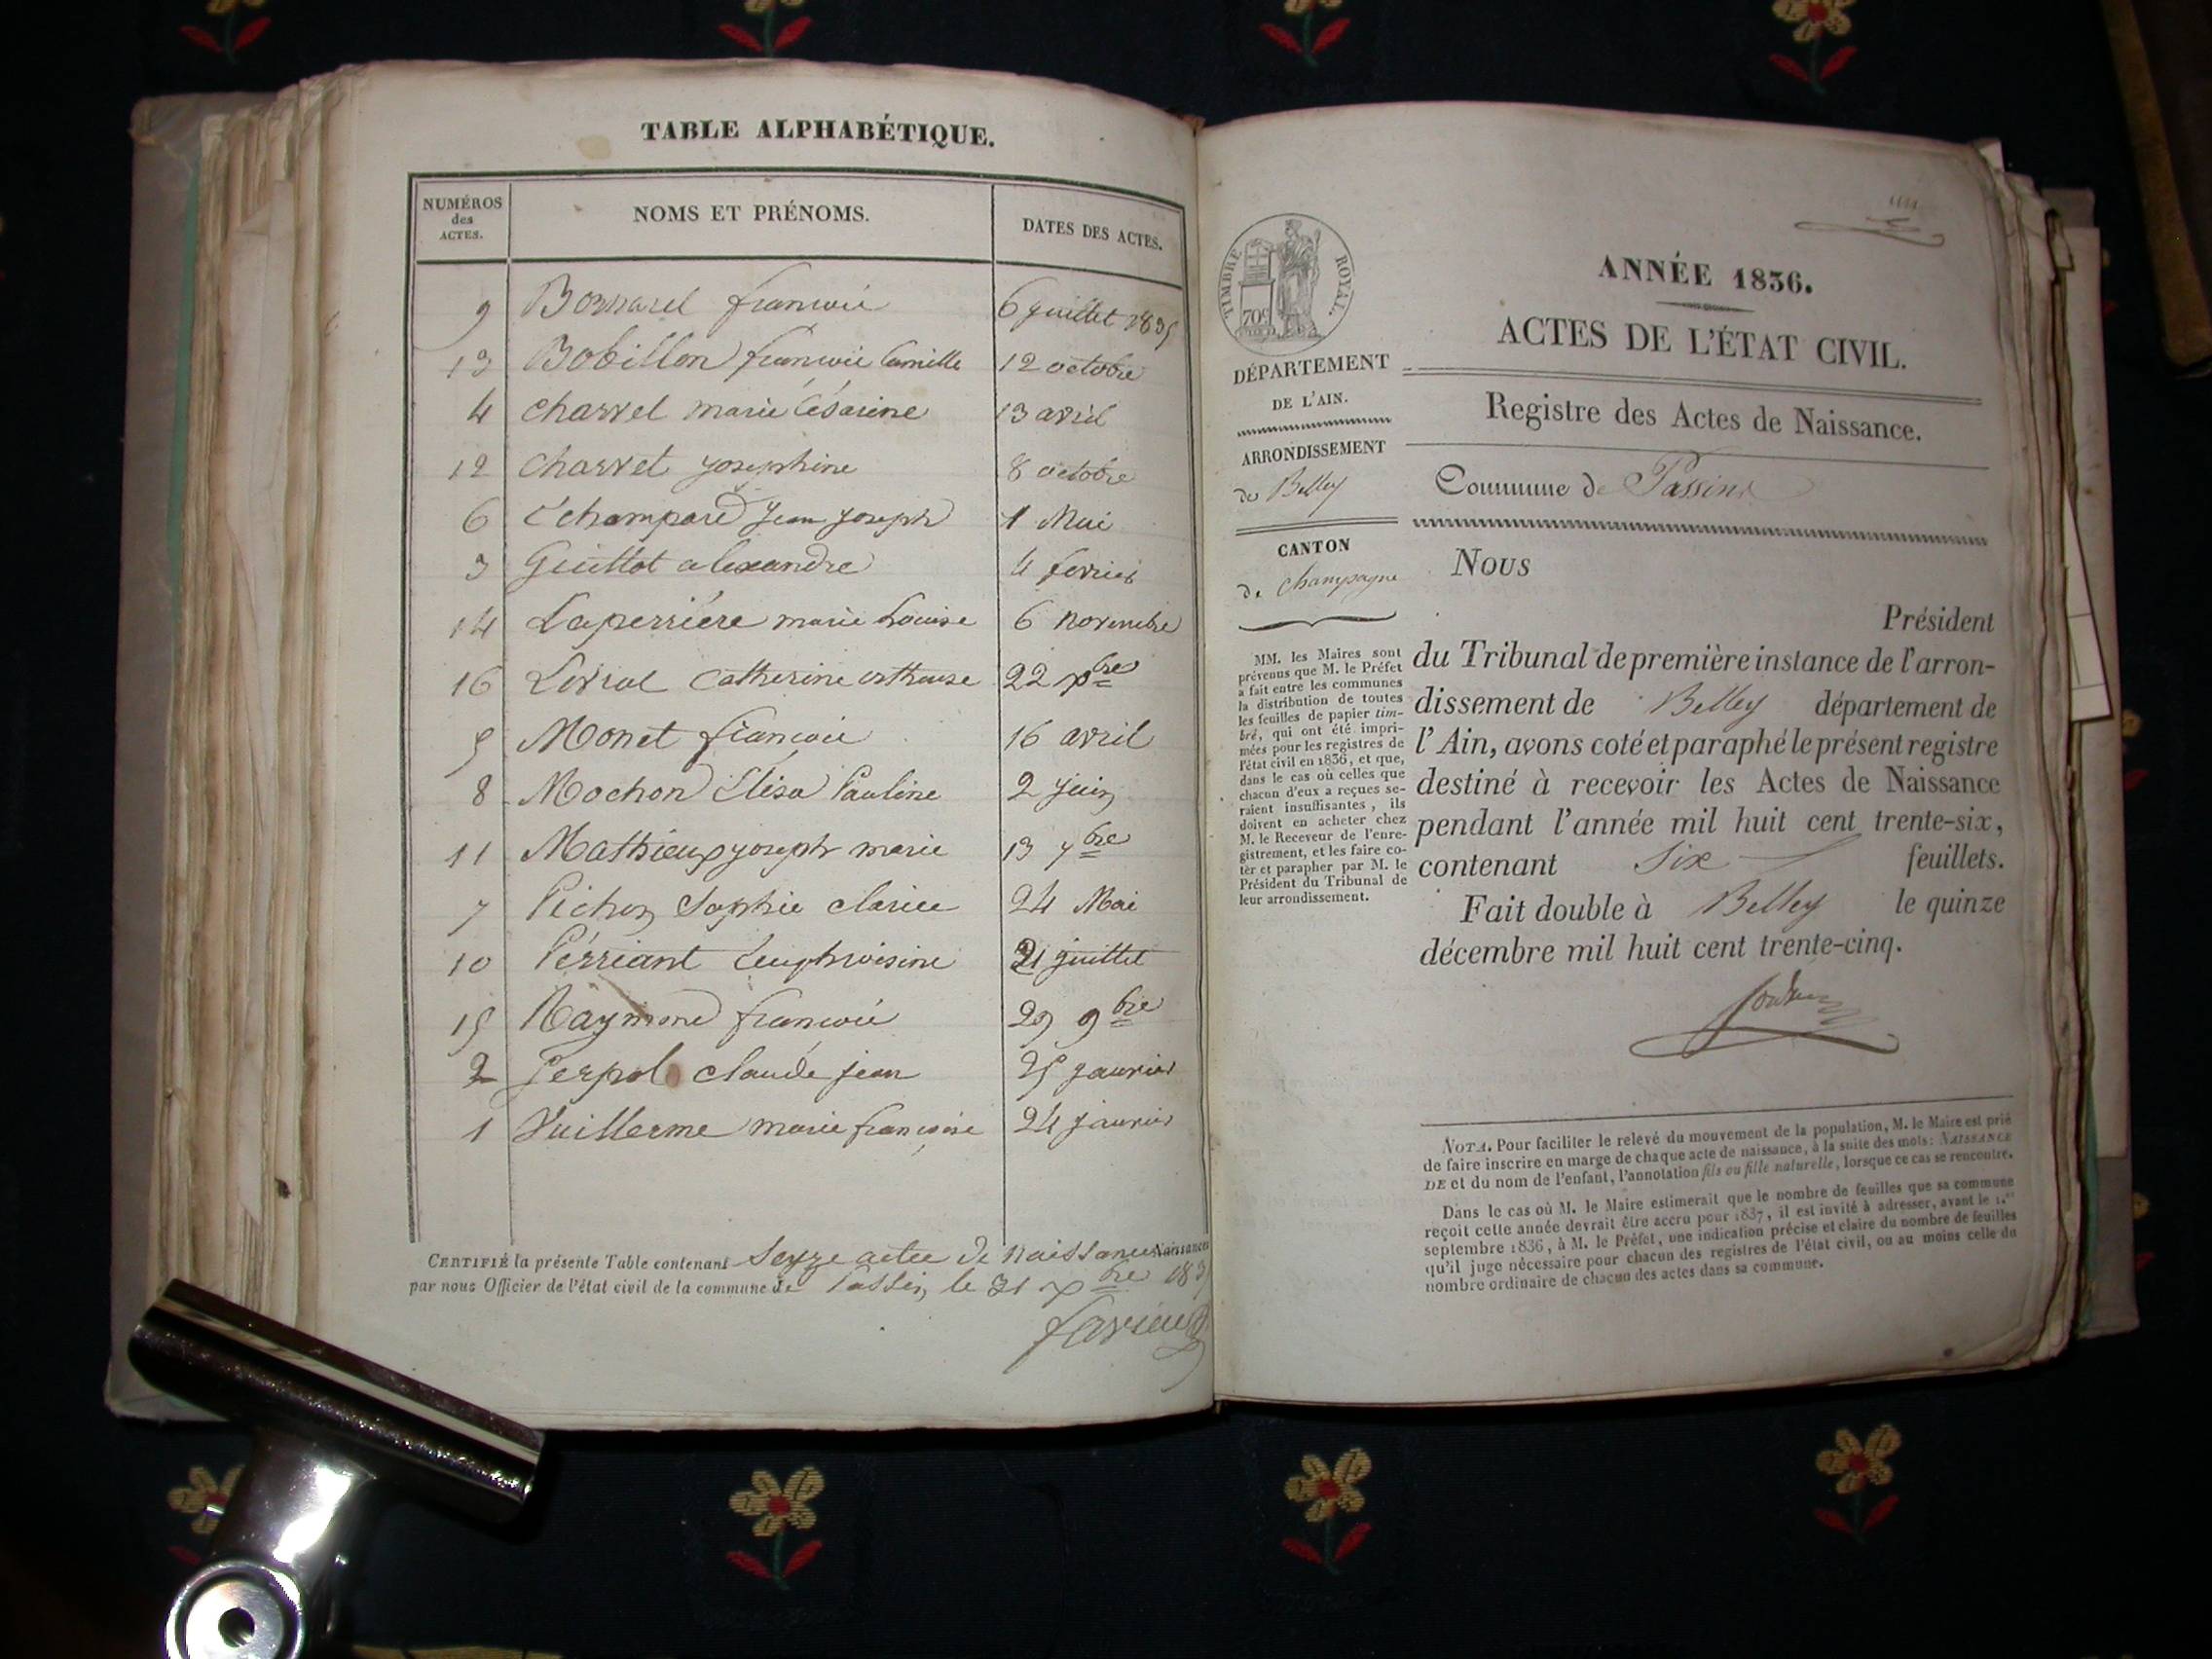 TABLE ALPHABÉTIQUE.
NUMÉROS des ACTES. NOMS ET PRÉNOMS. DATES DES ACTES.
9 Bonnarel francois 6 juillet 1835
13 Bobillon francois Camille 12 octobre
4 Charvet marie Césarine 13 avril
12 Charvet josephine 8 octobre
6 Echampard jean joseph 1 Mai
3 Guillot alexandre 4 fevrier
14 Laperriére marie Louise 6 novembre
16 Catherine 22 xbre
5 Monet francois 16 avril
8 Mochon Elisa Pauline 2 juin
11 Mathieu joseph marie 13 7bre
7 Pichon Sophie clarice 24 Mai
10 Perriant 21 juillet
15 Raymond francois 29 9bre
2 Serpol claude jean 25 janvier
1 Vuillerme marie francoise 24 janvier
CERTIFIÉ la présente Table contenant Seyze actes de Naissances Naissances
par nous Officier de l'état civil de la commune de Passin, le 31 xbre 183
TIMBRE ROYAL.
70c
DÉPARTEMENT
DE L'AIN.
ARRONDISSEMENT
de Belley
CANTON
de Champagne
MM. les Maires sont
prévenus que M. le Préfet
a fait entre les communes
la distribution de toutes
les feuilles de papier tim-
bré, qui ont été impri-
mées pour les registres de
l'état civil en 1836, et que,
dans le cas où celles que
chacun d'eux a reçues se-
raient insuffisantes, ils
doivent en acheter chez
M. le Receveur de l'enre-
gistrement, et les faire co-
ter et parapher par M. le
Président du Tribunal de
leur arrondissement.
ANNÉE 1836.
ACTES DE L'ÉTAT CIVIL.
Registre des Actes de Naissance.
Commune de Passins
Nous
Président
du Tribunal de première instance de l'arron-
dissement de Belley département de
l'Ain, avons coté et paraphé le présent registre
destiné à recevoir les Actes de Naissance
pendant l'année mil huit cent trente-six,
contenant Six feuillets.
Fait double à Belley le quinze
décembre mil huit cent trente-cinq.
NOTA. Pour faciliter le relevé du mouvement de la population, M. le Maire est prié
de faire inscrire en marge de chaque acte de naissance, à la suite des mots: NAISSANCE
DE et du nom de l'enfant, l'annotation fils ou fille naturelle, lorsque ce cas se rencontre.
Dans le cas où M. le Maire estimerait que le nombre de feuilles que sa commune
reçoit cette année devrait être accru pour 1837, il est invité à adresser, avant le 1.er
septembre 1836, à M. le Préfet, une indication précise et claire du nombre de feuilles
qu'il juge nécessaire pour chacun des registres de l'état civil, ou au moins celle du
nombre ordinaire de chacun des actes dans sa commune.